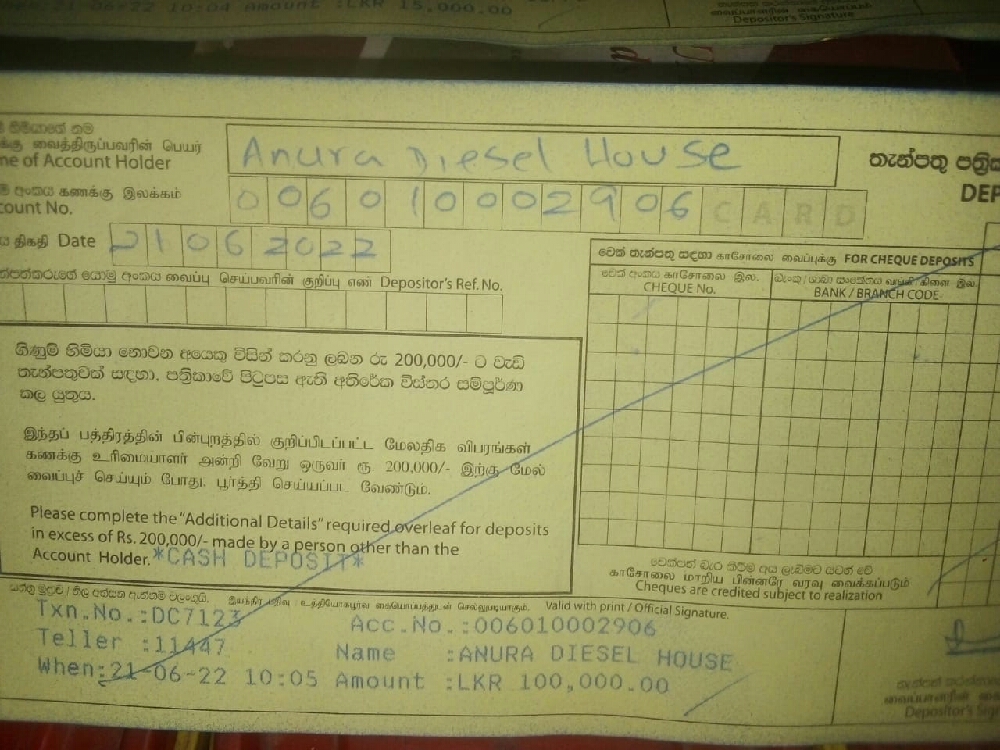 21-06-22 10:04 Amount :LKR 15,000.00
Depositor's Signature
හිමියාගේ නම
வைத்திருப்பவரின் பெயர்
me of Account Holder
Anura Diesel House
තැන්පතු පත්‍රික
DEP
අංකය கணக்கு இலக்கம்
count No.
006010002906 CARD
திகதி Date 21062022
වෙක් තැන්පතු සඳහා காசோலை வைப்புக்கு FOR CHEQUE DEPOSITS
යොමු අංකය வைப்பு செய்பவரின் குறிப்பு எண் Depositor's Ref. No.
වෙක් අංකය காசோலை இல.
CHEQUE No.
BANK / BRANCH CODE
ගිණුම් හිමියා නොවන අයෙකු විසින් කරනු ලබන රු 200,000/- ට වැඩි
තැන්පතුවක් සඳහා, පත්‍රිකාවේ පිටුපස ඇති අතිරේක විස්තර සම්පූර්ණ
කල යුතුය.
இந்தப் பத்திரத்தின் பின்புறத்தில் குறிப்பிடப்பட்ட மேலதிக விபரங்கள்
கணக்கு உரிமையாளர் அன்றி வேறு ஒருவர் ரூ 200,000/- இற்கு மேல்
வைப்புச் செய்யும் போது, பூர்த்தி செய்யப்பட வேண்டும்.
Please complete the "Additional Details" required overleaf for deposits
in excess of Rs. 200,000/- made by a person other than the
Account Holder.
*CASH DEPOSIT*
காசோலை மாறிய பின்னரே வரவு வைக்கப்படும்
Cheques are credited subject to realization
Valid with print / Official Signature.
Txn.No.:DC7123 Acc.No.:006010002906
Teller :11447 Name :ANURA DIESEL HOUSE
When:21-06-22 10:05 Amount :LKR 100,000.00
Depositor's Sign